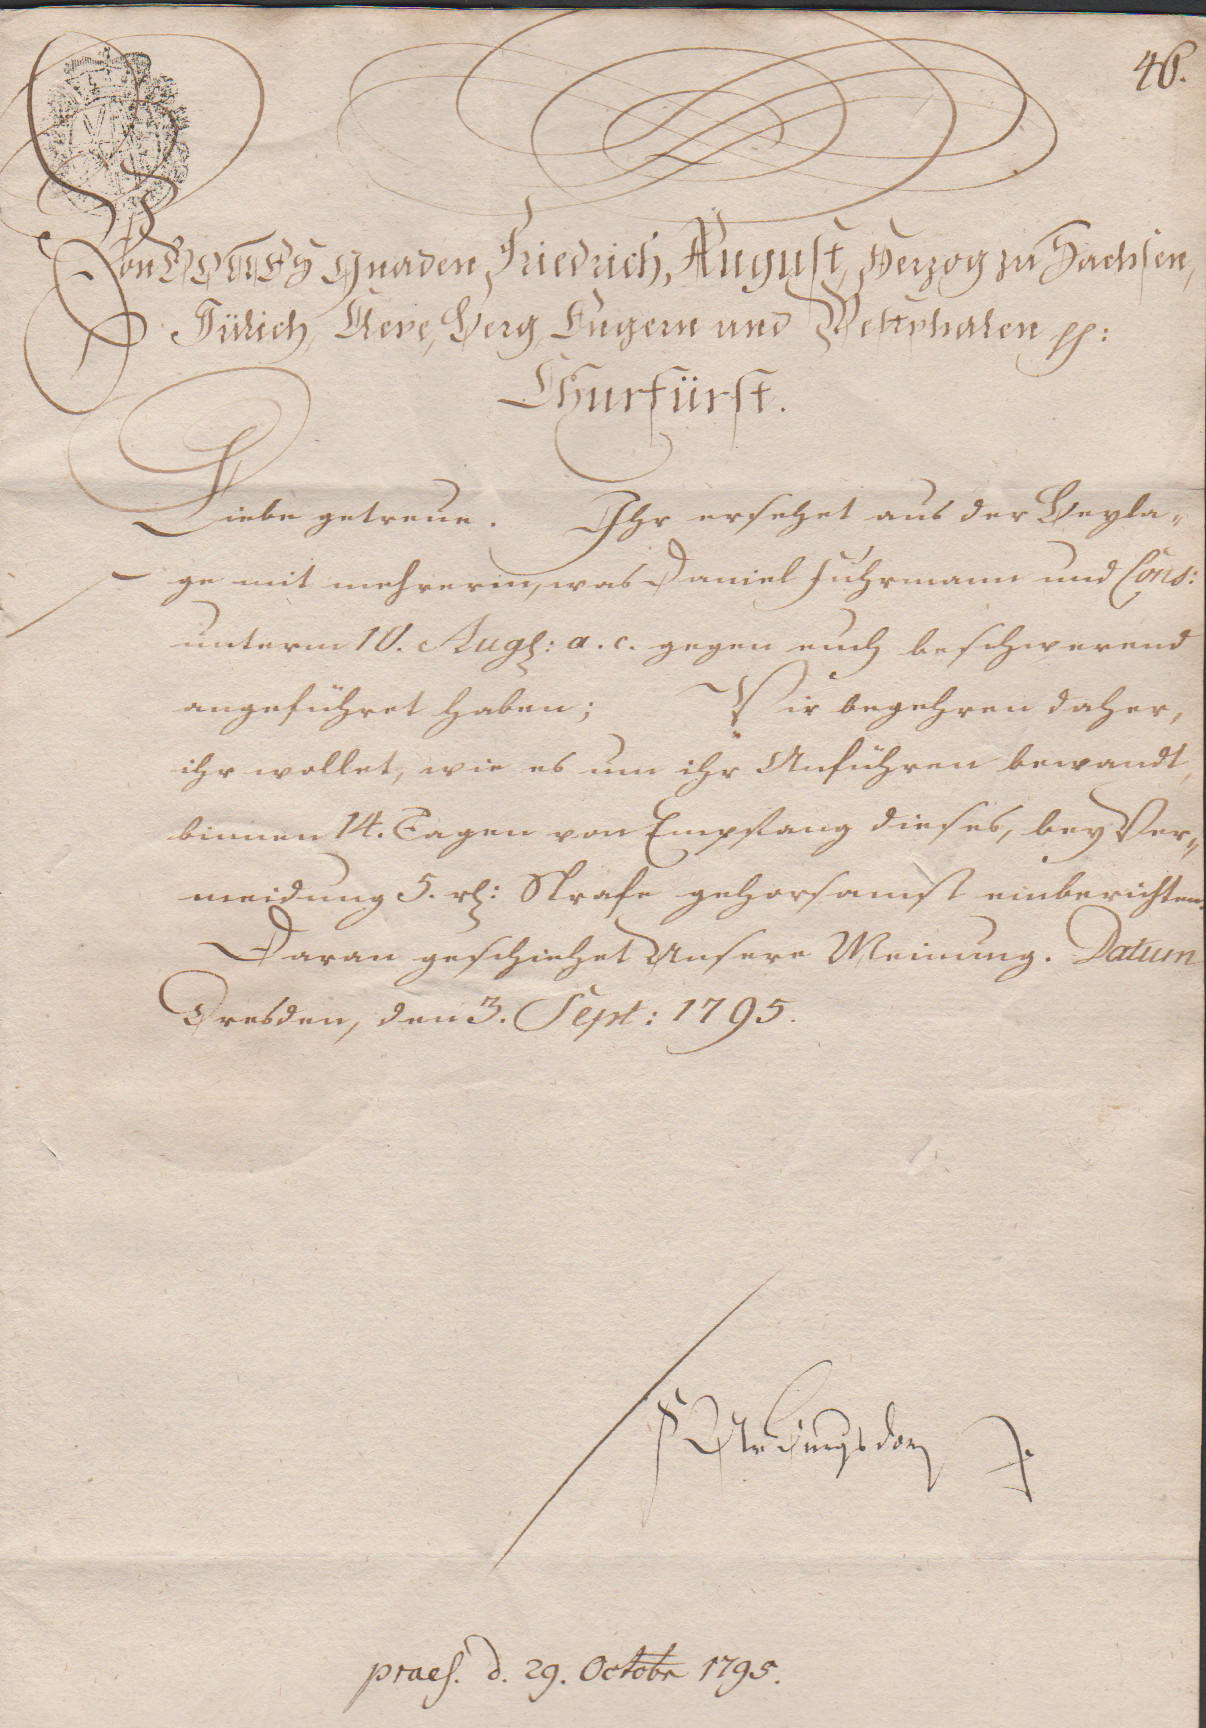 46.
Von GOTTES Gnaden, Friedrich, August, Herzog zu Sachsen,
Jülich, Cleve, Berg, Engern und Westphalen pp:
Churfürst.
Liebe getreue. Ihr ersehet aus der Beyla-
ge mit mehrerm, was Daniel Fuhrmann und Cons:
unterm 18. Aug: a. c. gegen euch beschwerend
angeführet haben; Wir begehren daher,
ihr wollet, wie es um ihr Anführen bewandt,
binnen 14. Tagen von Empfang dieses, bey Ver-
meidung 5. rh: Strafe gehorsamst einberichten.
Daran geschiehet Unsere Meinung. Datum
Dresden, den 3. Sept: 1795.
praes. d. 29. Octobr 1795.